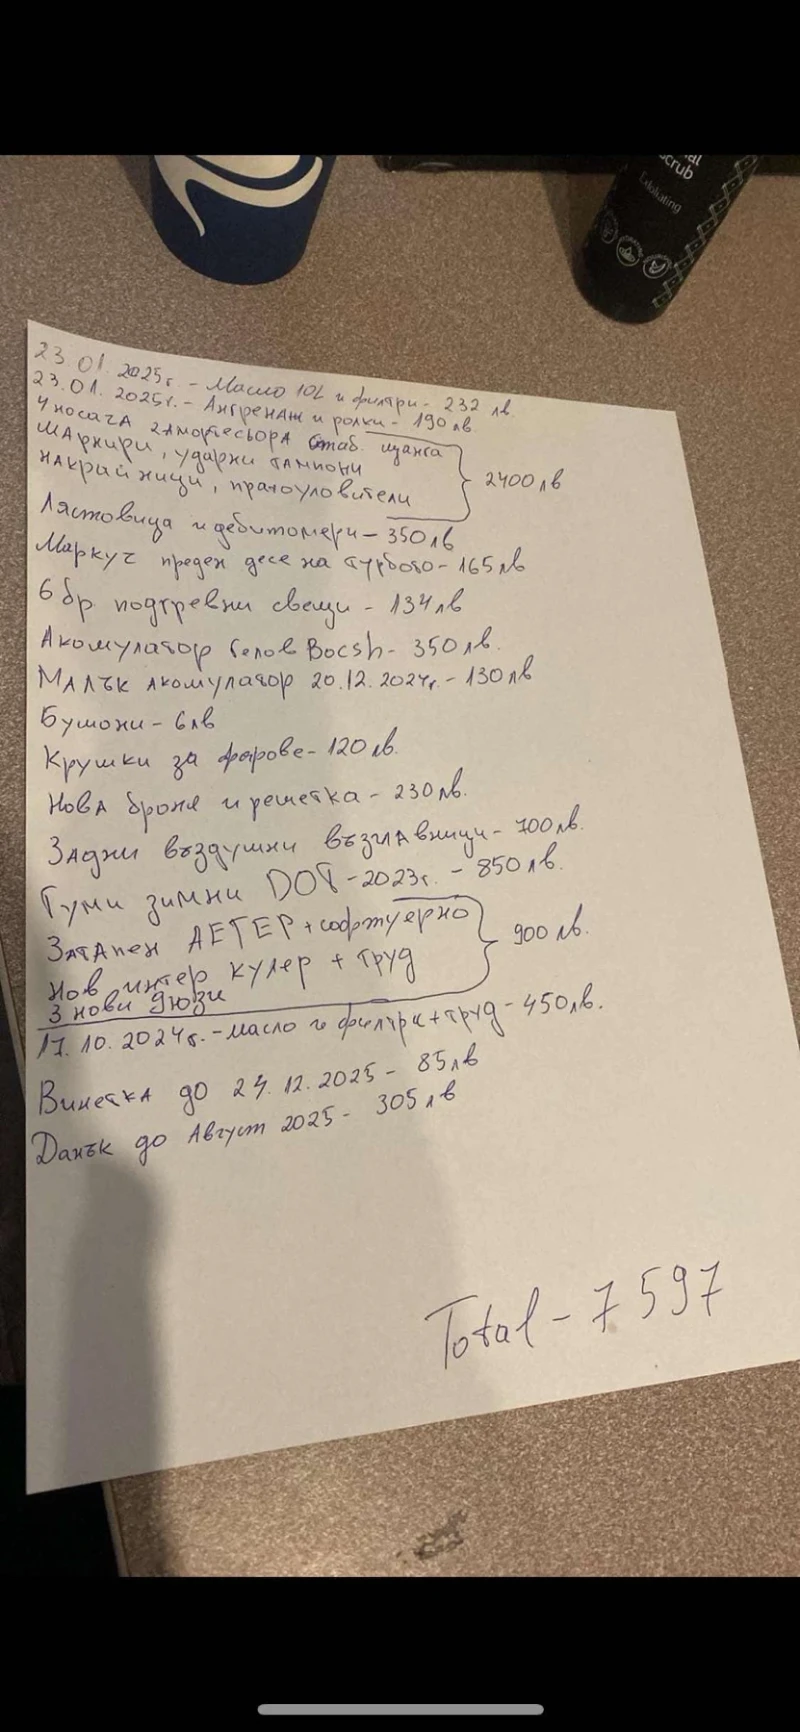 al
Scrub
Exfoliating
23.01.2025г. - Масло 10L и филтри - 232 лв.
23.01.2025г. - Ангренаж и ролки - 190 лв.
4 носача 2 амортесьора стаб. щанга
шарнири, ударни тампони
накрайници, прахоуловители
2400 лв
Лястовица и дебитомери - 350 лв
Маркуч преден десе на турбото - 165 лв
6 бр. подгревни свещи - 134 лв
Акомулатор Гелов Bocsh - 350 лв.
Малък акомулатор 20.12.2024г. - 130 лв
Бушони - 6 лв
Крушки за фарове - 120 лв.
Нова броня и решетка - 230 лв.
Задни въздушни възглавници - 700 лв.
Гуми зимни DOT - 2023г. - 850 лв.
Затапен АЕГЕР + софтуерно
Нов интер кулер + труд
3 нови дюзи
900 лв.
17.10.2024г. - масло и филтри + труд - 450 лв.
Винетка до 24.12.2025 - 85 лв
Данък до Август 2025 - 305 лв
Total - 7597